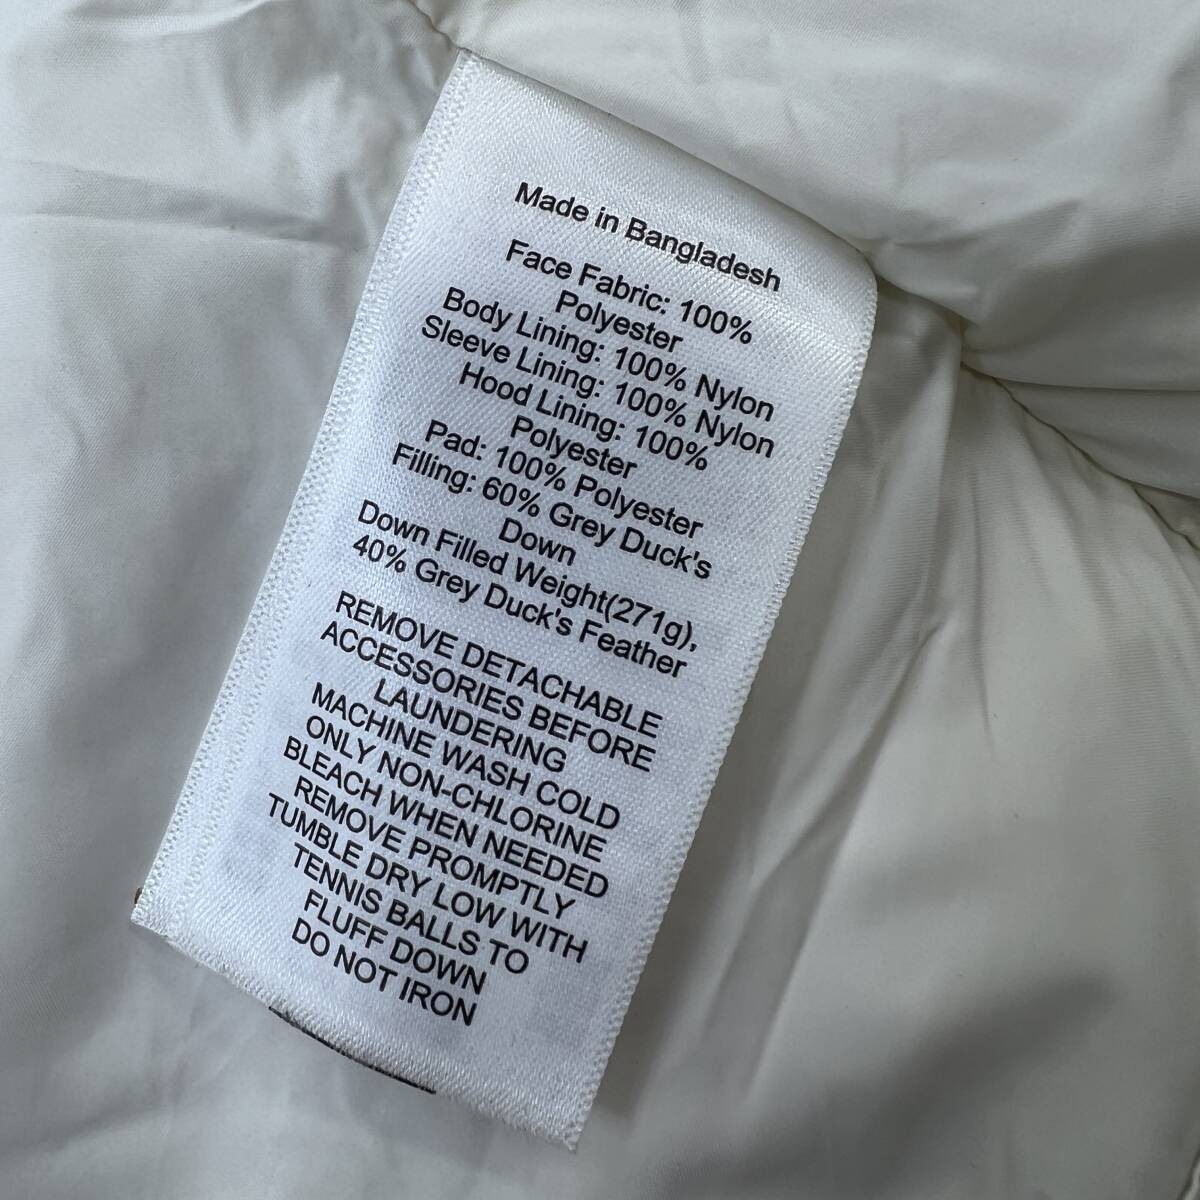 Made in Bangladesh
Face Fabric: 100%
Polyester
Body Lining: 100% Nylon
Sleeve Lining: 100% Nylon
Hood Lining: 100%
Polyester
Pad: 100% Polyester
Filling: 60% Grey Duck's
Down
Down Filled Weight(271g),
40% Grey Duck's Feather
REMOVE DETACHABLE
ACCESSORIES BEFORE
LAUNDERING
MACHINE WASH COLD
ONLY NON-CHLORINE
BLEACH WHEN NEEDED
REMOVE PROMPTLY
TUMBLE DRY LOW WITH
TENNIS BALLS TO
FLUFF DOWN
DO NOT IRON